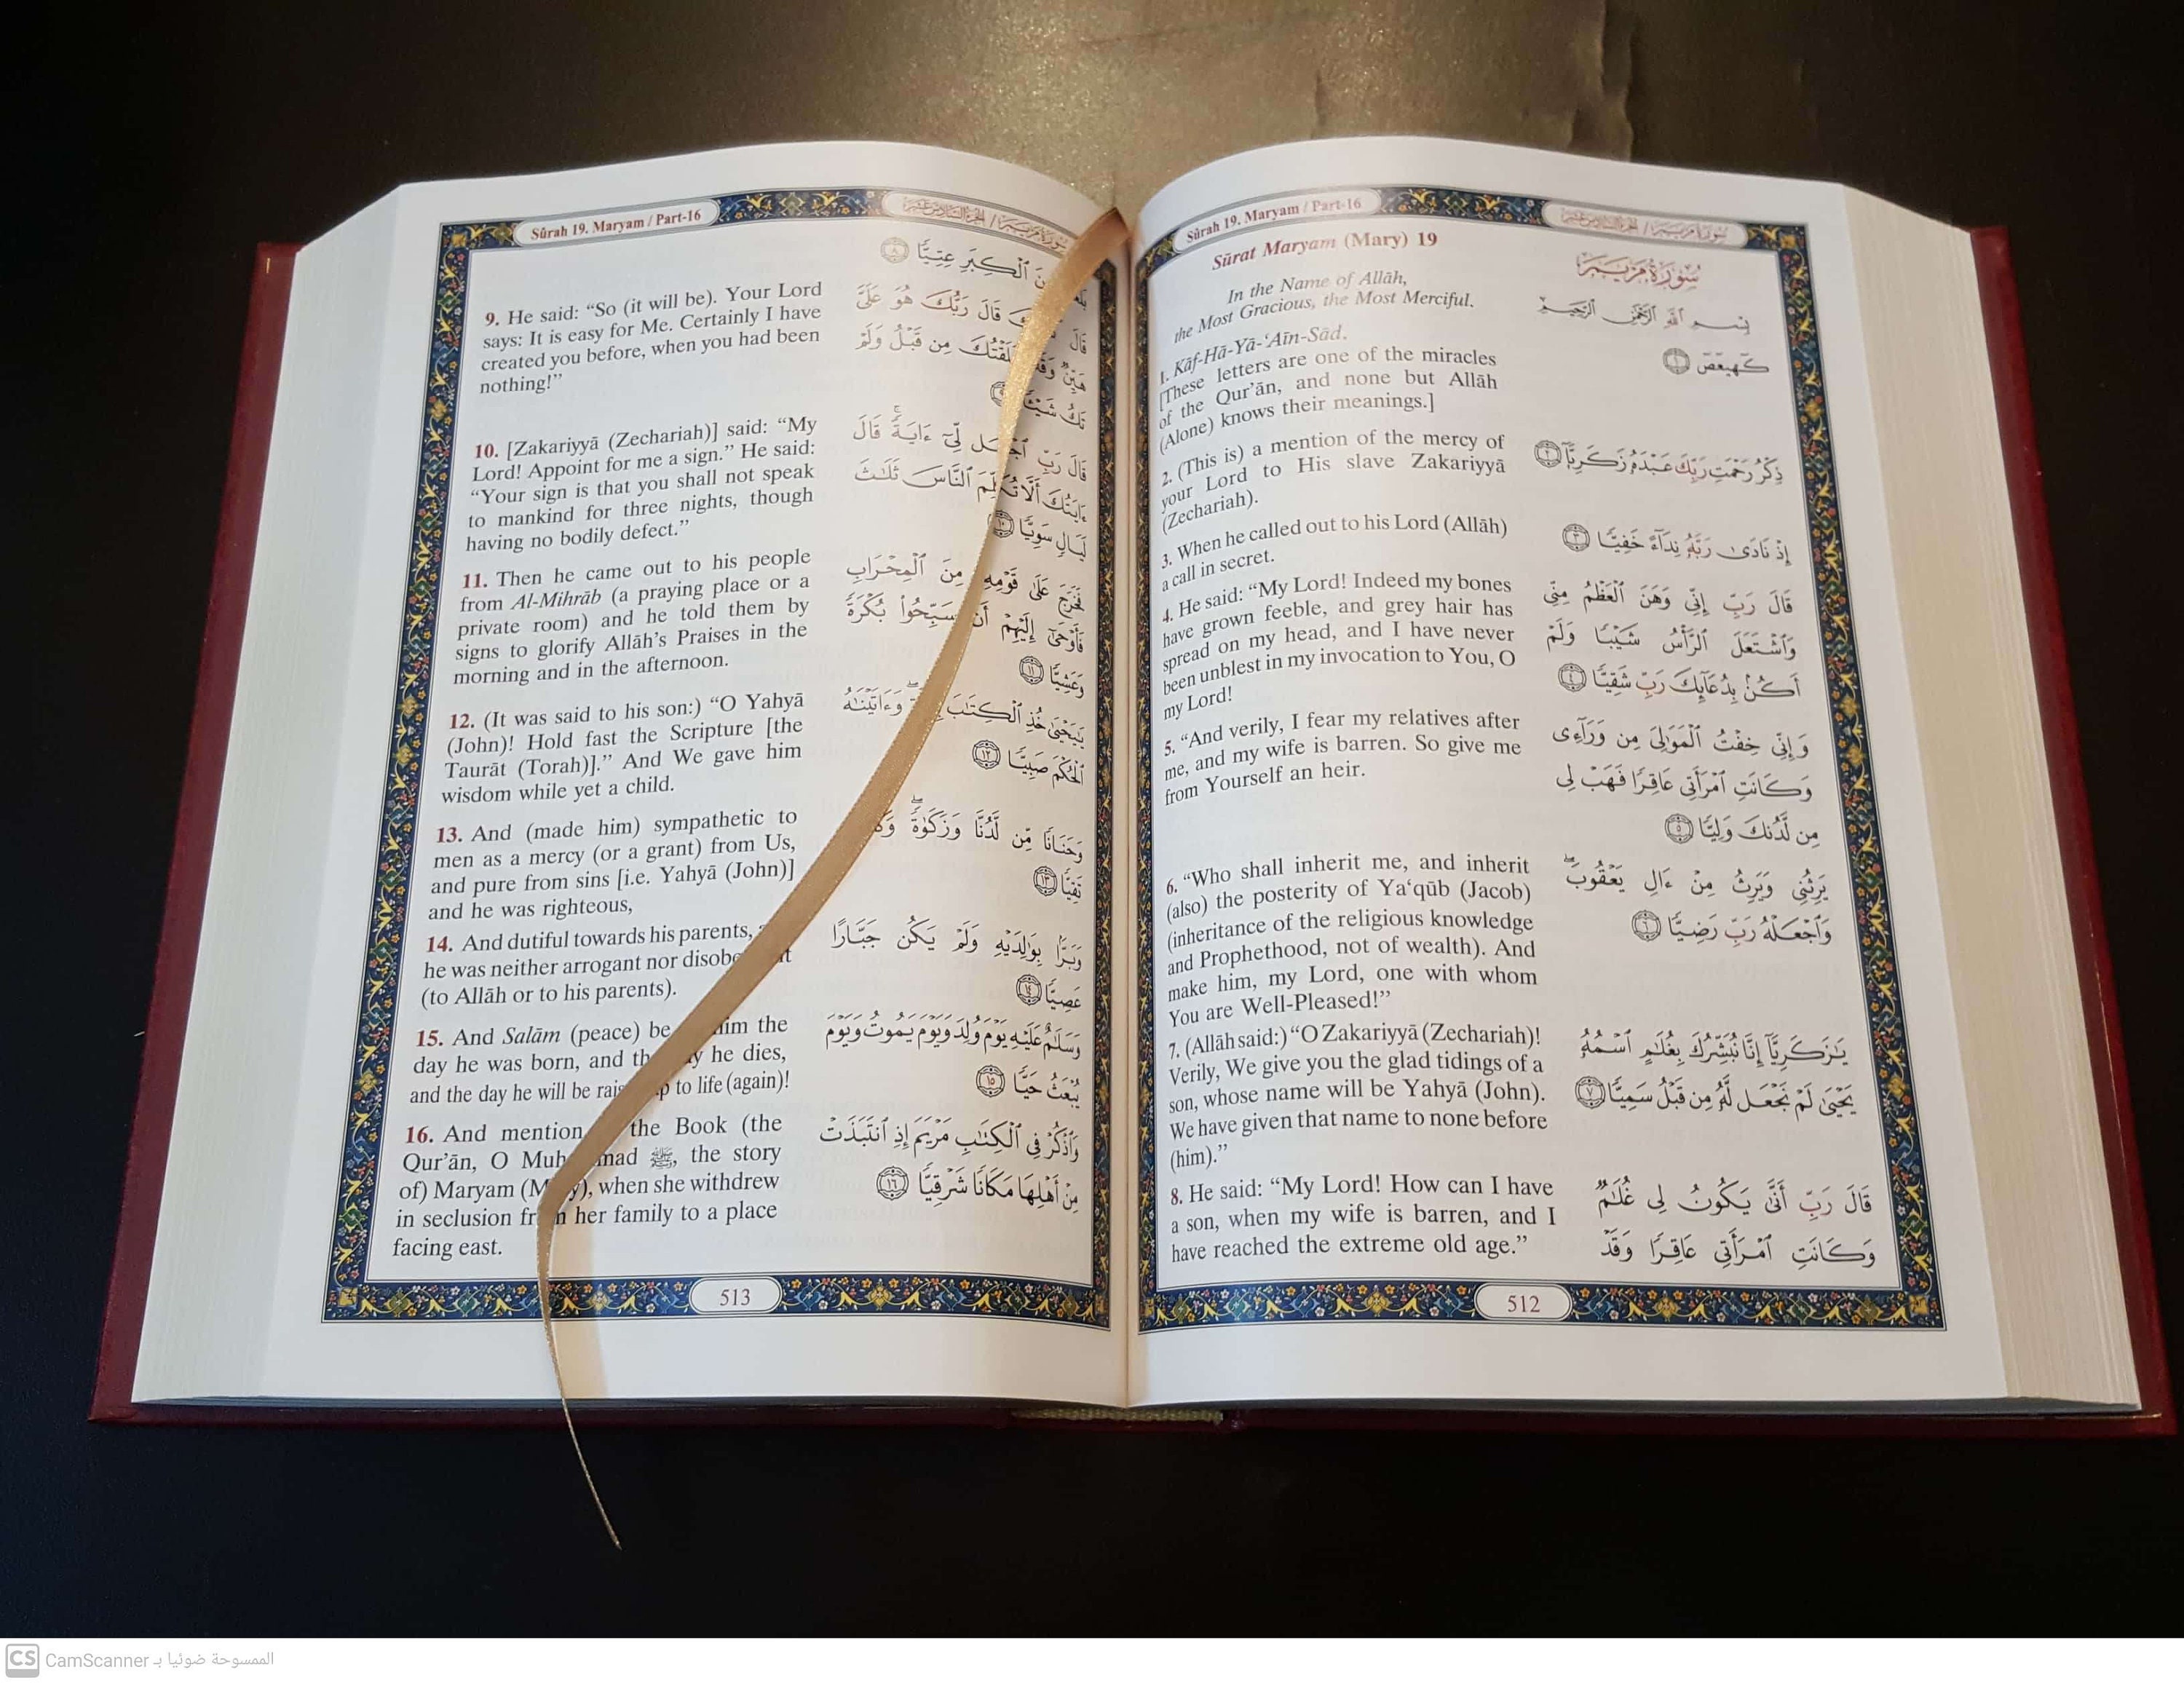 Sûrah 19. Maryam / Part-16
سورة مريم / الجزء السادس عشر
Sūrat Maryam (Mary) 19
سُورَةُ مَرْيَمَ
In the Name of Allāh,
the Most Gracious, the Most Merciful.
بِسْمِ ٱللَّهِ ٱلرَّحْمَٰنِ ٱلرَّحِيمِ
1. Kāf-Hā-Yā-‘Aīn-Sād.
[These letters are one of the miracles
of the Qur’ān, and none but Allāh
(Alone) knows their meanings.]
كٓهيعٓصٓ ١
2. (This is) a mention of the mercy of
your Lord to His slave Zakariyyā
(Zechariah).
ذِكْرُ رَحْمَتِ رَبِّكَ عَبْدَهُۥ زَكَرِيَّآ ٢
3. When he called out to his Lord (Allāh)
a call in secret.
إِذْ نَادَىٰ رَبَّهُۥ نِدَآءً خَفِيًّا ٣
4. He said: “My Lord! Indeed my bones
have grown feeble, and grey hair has
spread on my head, and I have never
been unblest in my invocation to You, O
my Lord!
قَالَ رَبِّ إِنِّى وَهَنَ ٱلْعَظْمُ مِنِّى
وَٱشْتَعَلَ ٱلرَّأْسُ شَيْبًا وَلَمْ
أَكُنۢ بِدُعَآئِكَ رَبِّ شَقِيًّا ٤
5. “And verily, I fear my relatives after
me, and my wife is barren. So give me
from Yourself an heir.
وَإِنِّى خِفْتُ ٱلْمَوَٰلِىَ مِن وَرَآءِى
وَكَانَتِ ٱمْرَأَتِى عَاقِرًا فَهَبْ لِى
مِن لَّدُنكَ وَلِيًّا ٥
6. “Who shall inherit me, and inherit
(also) the posterity of Ya‘qūb (Jacob)
(inheritance of the religious knowledge
and Prophethood, not of wealth). And
make him, my Lord, one with whom
You are Well-Pleased!”
يَرِثُنِى وَيَرِثُ مِنْ ءَالِ يَعْقُوبَ ۖ
وَٱجْعَلْهُ رَبِّ رَضِيًّا ٦
7. (Allāh said:) “O Zakariyyā (Zechariah)!
Verily, We give you the glad tidings of a
son, whose name will be Yahyā (John).
We have given that name to none before
(him).”
يَٰزَكَرِيَّآ إِنَّا نُبَشِّرُكَ بِغُلَٰمٍ ٱسْمُهُۥ
يَحْيَىٰ لَمْ نَجْعَل لَّهُۥ مِن قَبْلُ سَمِيًّا ٧
8. He said: “My Lord! How can I have
a son, when my wife is barren, and I
have reached the extreme old age.”
قَالَ رَبِّ أَنَّىٰ يَكُونُ لِى غُلَٰمٌ
وَكَانَتِ ٱمْرَأَتِى عَاقِرًا وَقَدْ
512
Sûrah 19. Maryam / Part-16
سورة مريم / الجزء السادس عشر
ٱلْكِبَرِ عِتِيًّا ٨
9. He said: “So (it will be). Your Lord
says: It is easy for Me. Certainly I have
created you before, when you had been
nothing!”
قَالَ قَالَ رَبُّكَ هُوَ عَلَىَّ
هَيِّنٌ وَقَدْ خَلَقْتُكَ مِن قَبْلُ وَلَمْ
تَكُ شَيْـًٔا ٩
10. [Zakariyyā (Zechariah)] said: “My
Lord! Appoint for me a sign.” He said:
“Your sign is that you shall not speak
to mankind for three nights, though
having no bodily defect.”
قَالَ رَبِّ ٱجْعَل لِّىٓ ءَايَةً ۚ قَالَ
ءَايَتُكَ أَلَّا تُكَلِّمَ ٱلنَّاسَ ثَلَٰثَ
لَيَالٍ سَوِيًّا ١٠
11. Then he came out to his people
from Al-Mihrāb (a praying place or a
private room) and he told them by
signs to glorify Allāh’s Praises in the
morning and in the afternoon.
فَخَرَجَ عَلَىٰ قَوْمِهِۦ مِنَ ٱلْمِحْرَابِ
فَأَوْحَىٰٓ إِلَيْهِمْ أَن سَبِّحُوا۟ بُكْرَةً
وَعَشِيًّا ١١
12. (It was said to his son:) “O Yahyā
(John)! Hold fast the Scripture [the
Taurāt (Torah)].” And We gave him
wisdom while yet a child.
يَٰيَحْيَىٰ خُذِ ٱلْكِتَٰبَ وَءَاتَيْنَٰهُ
ٱلْحُكْمَ صَبِيًّا ١٢
13. And (made him) sympathetic to
men as a mercy (or a grant) from Us,
and pure from sins [i.e. Yahyā (John)]
and he was righteous,
وَحَنَانًا مِّن لَّدُنَّا وَزَكَوٰةً ۖ
تَقِيًّا ١٣
14. And dutiful towards his parents,
he was neither arrogant nor
(to Allāh or to his parents).
وَبَرًّۢا بِوَٰلِدَيْهِ وَلَمْ يَكُن جَبَّارًا
عَصِيًّا ١٤
15. And Salām (peace) be him the
day he was born, and he dies,
and the day he will be to life (again)!
وَسَلَٰمٌ عَلَيْهِ يَوْمَ وُلِدَ وَيَوْمَ يَمُوتُ وَيَوْمَ
يُبْعَثُ حَيًّا ١٥
16. And mention the Book (the
Qur’ān, O ﷺ, the story
of) Maryam when she withdrew
in seclusion her family to a place
facing east.
وَٱذْكُرْ فِى ٱلْكِتَٰبِ مَرْيَمَ إِذِ ٱنتَبَذَتْ
مِنْ أَهْلِهَا مَكَانًا شَرْقِيًّا ١٦
513
CS CamScanner الممسوحة ضوئيا بـ